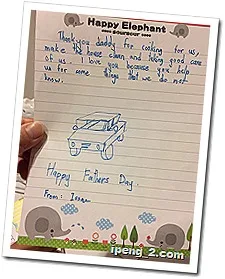 Happy Elephant
Thank you daddy for cooking for us,
make the house clean and taking good care
of us. I love you because you help
us for some things that we do not
know.
Happy Fathers Day.
From:
ipeng_2.com